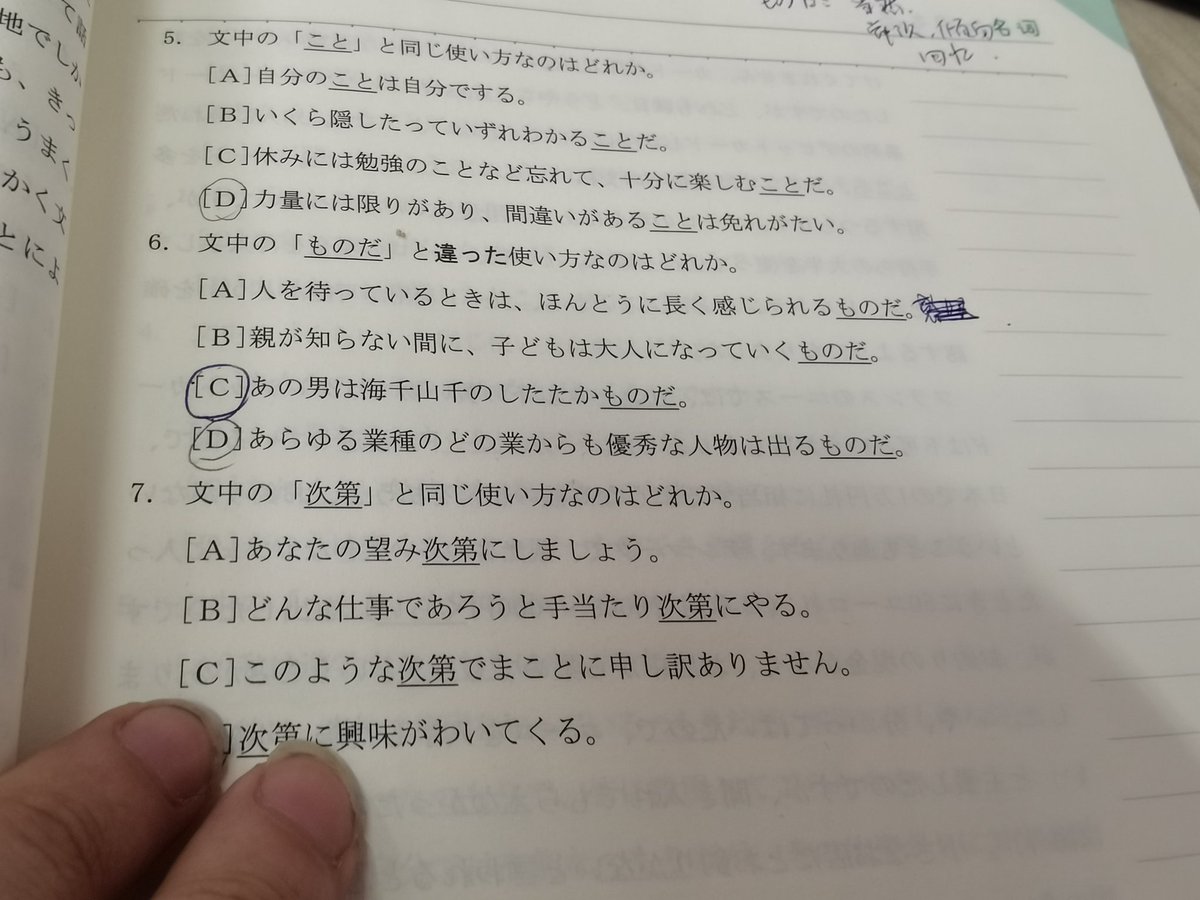 て
地でしか
も、きっ
うまく
かく文
とによ
回忆.
5. 文中の「こと」と同じ使い方なのはどれか。
[A]自分のことは自分でする。
[B]いくら隠したっていずれわかることだ。
[C]休みには勉強のことなど忘れて、十分に楽しむことだ。
[D]力量には限りがあり、間違いがあることは免れがたい。
6. 文中の「ものだ」と違った使い方なのはどれか。
[A]人を待っているときは、ほんとうに長く感じられるものだ。
[B]親が知らない間に、子どもは大人になっていくものだ。
[C]あの男は海千山千のしたたかものだ。
[D]あらゆる業種のどの業からも優秀な人物は出るものだ。
7. 文中の「次第」と同じ使い方なのはどれか。
[A]あなたの望み次第にしましょう。
[B]どんな仕事であろうと手当たり次第にやる。
[C]このような次第でまことに申し訳ありません。
]次第に興味がわいてくる。